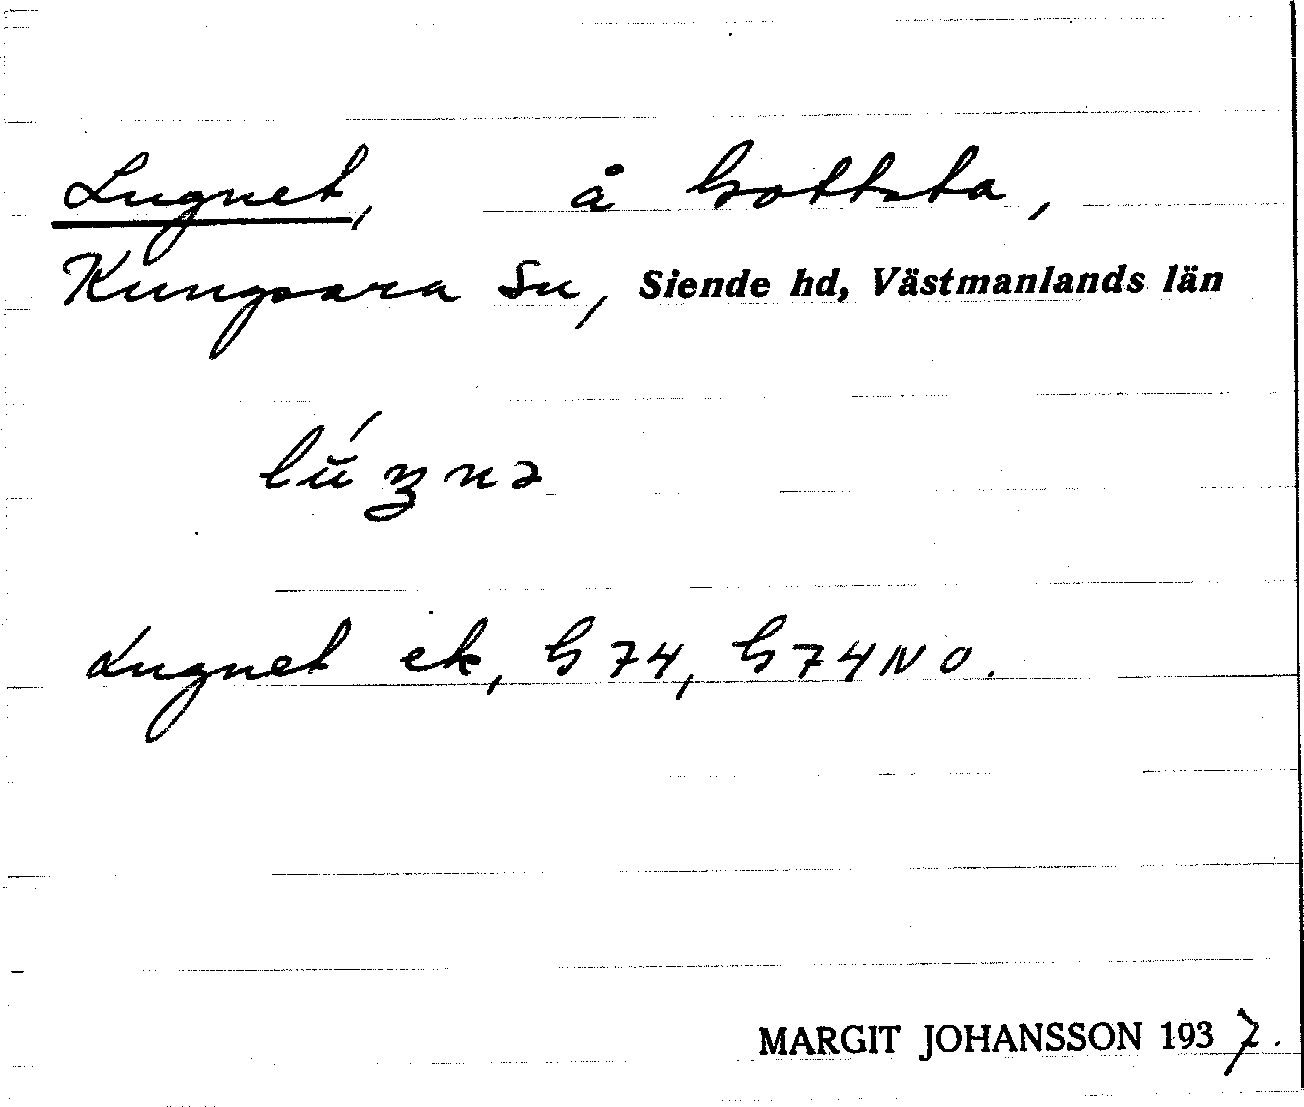 Lugnet, å Gottsta,
Kungsara Sn, Siende hd, Västmanlands län
Lugnet ek, G 74, G 74 NO.
MARGIT JOHANSSON 1937.